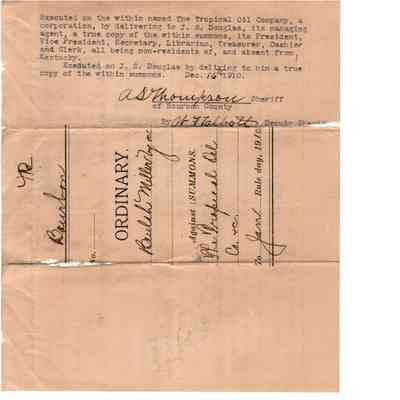 Executed on the within named The Tropical Oil Company, a
corporation, by delivering to J. S. Douglas, its managing
agent, a true copy of the within summons, its President,
Vice President, Secretary, Librarian, Treasurer, Cashier
and Clerk, all being non-residents of, and absent from
Kentucky.
Executed on J. S. Douglas by deliving to him a true
copy of the within summons. Dec. 15th 1910.
A S Thompson Sheriff
of Bourbon County
By W F Talbott Deputy Sheriff
Bourbon
No.
ORDINARY.
Miller by &c
Against SUMMONS.
The Tropical Oil
Co. &c.
To Jan Rule day, 1910